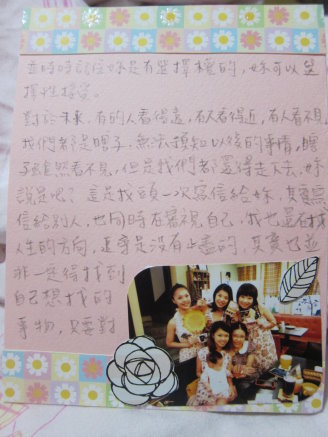 並時時記住妳是有選擇權的，妳可以選
擇性接受。
對於未來，有的人看得遠，有人看得近，有人看不見，
我們都是瞎子，無法預知以後的事情，瞎
子雖然看不見，但是我們都還得走下去，妳
說是吧？這是我頭一次寫信給妳，其實寫
信給別人，也同時在審視自己，我也還在找
人生的方向，追尋是沒有止盡的，其實也並
非一定得找到
自己想找的
事物，只要對